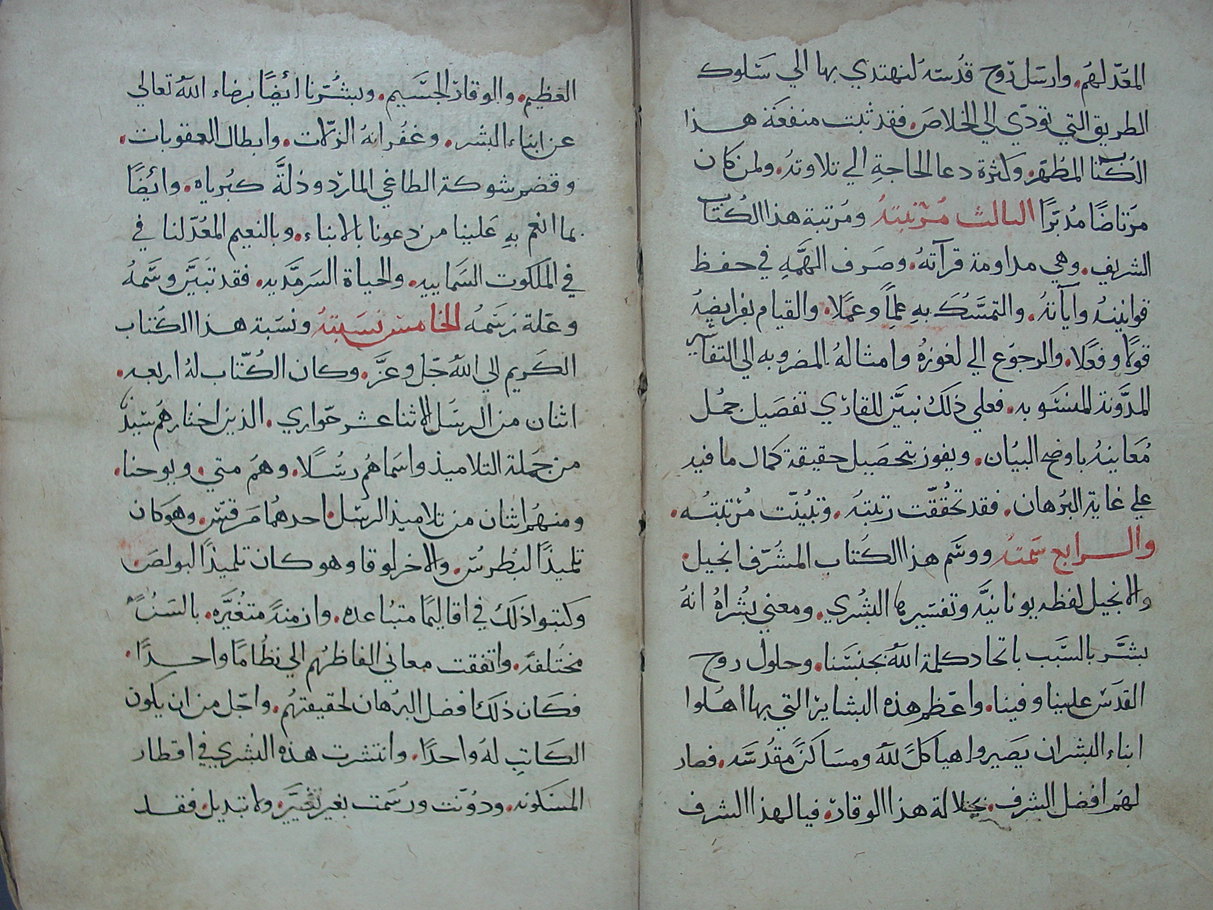 المعّد لهم. وارسل روح قدسه لنهتدي بها الي سلوك
الطريق التي تودي الي الخلاص. فقد ثبت منفعة هذا
الكتاب المطهّر. ولثرة دعا الحاجة الي تلاوته. ولمن كان
مرتاضًا مدبرًا الثالث مرتبته ومرتبة هذا الكتاب
الشريف. وهي مداومة قرآته. وصرف الهمّه في حفظ
قوانينه وآياته. والتمسّك به علمًا وعملًا. والقيام بفرايضه
قولًا وفعلًا. والرجوع الي لغوزه وامثاله المضروبه الي التفاسير
المدّونة المنسوبه. فعلي ذلك نبيّن للقاري تفصيل جمل
معانيه باوضح البيان. ويفوز بتحصيل حقيقة كمال ما فيه
علي غاية البرهان. فقد تحققت رتبته. وتبيّنت مرتبته.
والرابع سمته ووسم هذا الكتاب المشرّف انجيل.
والانجيل لفظه يونانيّه وتفسيرها البشري. ومعني بشراه انه
بشّر بالسبب باتحاد كلمة الله بجنسنا. وحلول روح
القدس علينا وفينا. واعظم هذه البشاير التي بها اهلوا
ابناء البشر ان يصيروا هياكلَّ لله ومساكنَ مقدسّه. فصار
لهم افضل الشرف. بجلالة هذا الوقار. فيا لهذا الشرف
العظيم. والوقار الجسيم. وبشّرنا ايضًا برضاء الله تعالي
عن ابناء البشر. وغفرانه الزلات. وابطال العقوبات.
وقضم شوكة الطاغي المارد وذلّة كبرياه. وايضًا
بما انعم به علينا من دعونا بالابناء. وبالنعيم المعّد لنا في
في الملكوت السماييه. والحياة السرمّديه. فقد تبيّن وسمه
وعلة رسمه الخامس نسبته ونسبة هذا الكتاب
الكريم الي الله جّل وعزّ. وكان الكتّاب له اربعه.
اثنان من الرسل الاثنا عشر حواري. الذين اختارهم سيدّنا
من جملة التلاميذ واسماهم رسلًا. وهم متي. ويوحنا.
ومنهم اثنان من تلاميذ الرسل. احدهما مرقس. وهو كان
تلميذًا لبطرس. والاخر لوقا وهو كان تلميذًا لبولص.
وكتبوا ذلك في اقاليما متباعده. وازمنة متغيّره. بالسنٍ
مختلفة. واتفقت معاني الفاظهم الي نظامًا واحدًا.
فكان ذلك افضل البرهان لحقيقتهم. واجّل من ان يكون
الكاتب له واحدًا. وانتشرت هذه البشري في اقطار
المسكونه. ودوّنت ورسمت بغير تغيير. ولا تبديل. فقد